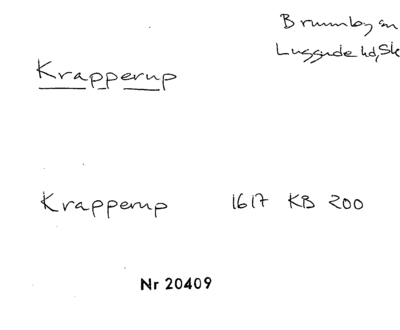 Brunnby sn
Luggude hd, Sk
Krapperup
Krapperup 1617 KB 200
Nr 20409